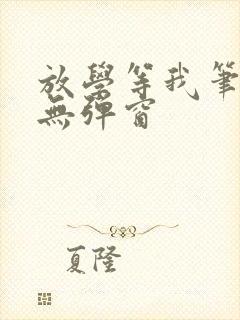 放學等我筆
無彈窗
夏隆